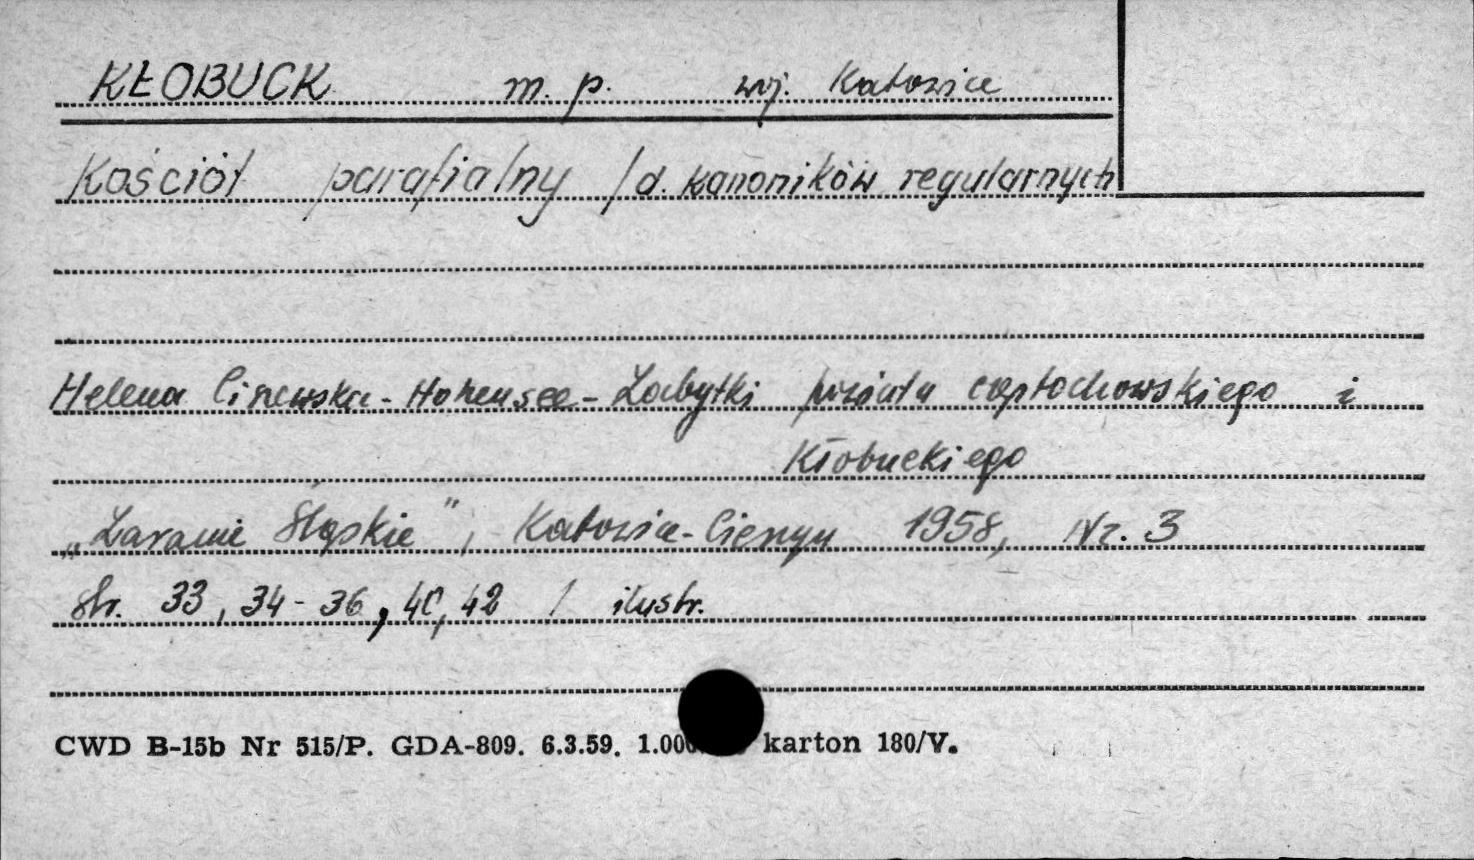 KŁOBUCK m. p. woj. Katowice
Kościół parafialny /d. kanoników regularnych
Helena Ciszewska-Hohensee - Zabytki powiatu częstochowskiego i
Kłobuckiego
„Zaranie Śląskie", Katowice-Cieszyn 1958, Nr. 3
str. 33, 34-36, 40, 42 / ilustr.
CWD B-15b Nr 515/P. GDA-809. 6.3.59. karton 180/V.